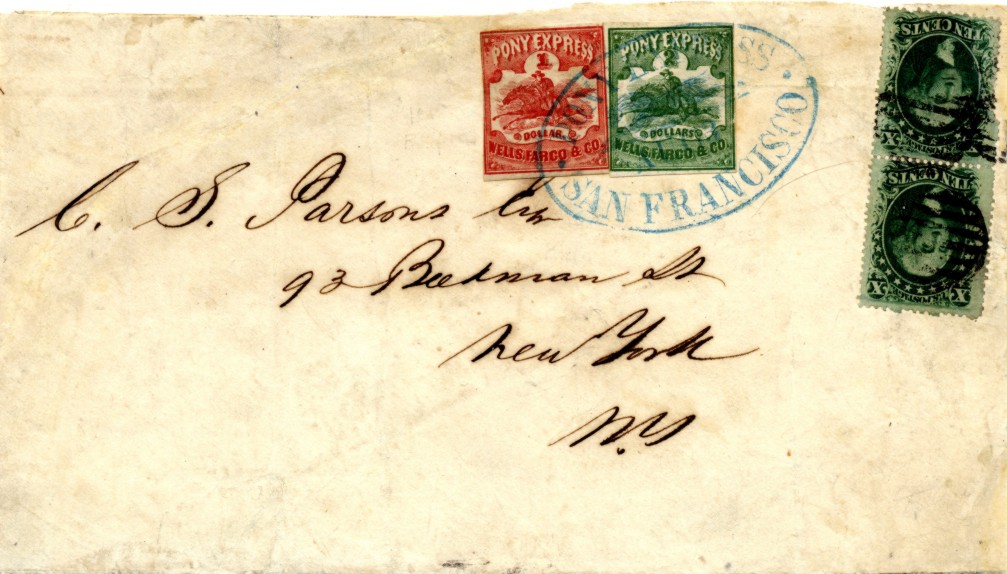 PONY EXPRESS
1
DOLLAR
WELLS, FARGO & CO.
PONY EXPRESS
DOLLARS
WELLS, FARGO & CO.
PONY EXPRESS
SAN FRANCISCO
TEN CENTS
X X
TEN CENTS
U.S. POSTAGE
X X
C. S. Parsons Esq
93 Beekman St
New York
N.Y